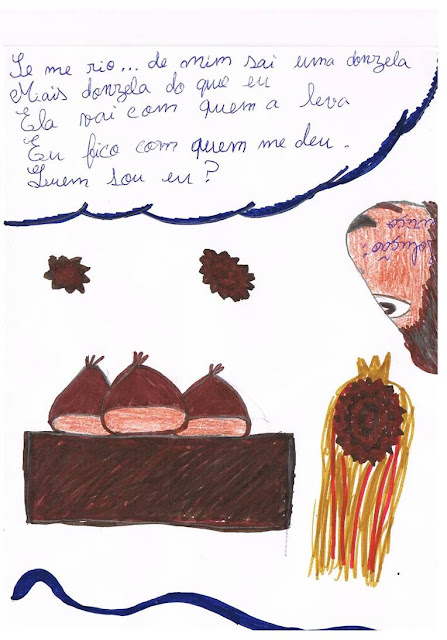 Se me rio... de mim sai uma donzela
Mais donzela do que eu
Ela vai com quem a leva
Eu fico com quem me deu.
Quem sou eu?
Solução:
ouriço